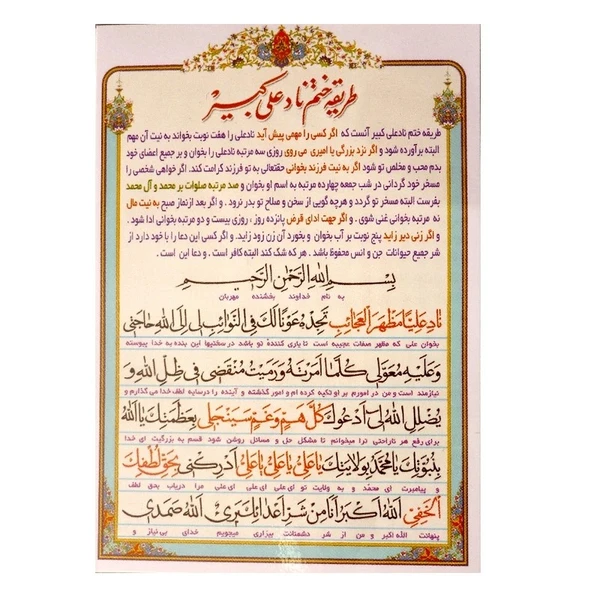 طریقه ختم ناد علی کبیر
طریقه ختم نادعلی کبیر آنست که اگر کسی را مهمی پیش آید نادعلی را هفت نوبت بخواند به نیت آن مهم
البته برآورده شود و اگر نزد بزرگی یا امیری می روی روزی سه مرتبه نادعلی را بخوان و بر جمیع اعضای خود
بدم محب و مخلص تو شود اگر به نیت فرزند بخوانی حقتعالی به تو فرزند کرامت کند. اگر خواهی شخصی را
مسخر خود گردانی در شب جمعه چهارده مرتبه به اسم او بخوان و صد مرتبه صلوات بر محمد و آل محمد
بفرست البته مسخر تو گردد و هرچه گویی از سخن و صلاح تو بدر نرود . و اگر بعد ازنماز صبح به نیت مال
نه مرتبه بخوانی غنی شوی . و اگر جهت ادای قرض پانزده روز ، روزی بیست و دو مرتبه بخوانی ادا شود .
و اگر زنی دیر زاید پنج نوبت بر آب بخوان و بخورد آن زن زود زاید. و اگر کسی این دعا را با خود دارد از
شر جمیع حیوانات جن و انس محفوظ باشد . هر که شک کند البته کافر است . و دعا این است .
بِسْمِ اللهِ الرَّحْمٰنِ الرَّحیمِ
به نام خداوند بخشنده مهربان
نادِ عَلِیًّا مَظْهَرَ الْعَجائِبِ تَجِدْهُ عَوْنًا لَكَ فِی النَّوائِبِ لی اِلَی اللهِ حاجَتی
بخوان علی که مظهر صفات عجیبه است تا یاری کنندهٔ تو باشد در سختیها این بنده به خدا پیوسته
وَعَلَیْهِ مُعَوَّلی كُلَّما اَمَرْتَهُ وَرَمَیْتَ مُنْقَضی فی ظِلِّ اللهِ وَ
نیازمند است و من در امورم بر او تکیه کرده ام و امور گذشته و آینده را درسایه لطف خدا می گذارم و
یُضْلِلِ اللهُ لی اَدْعُوكَ كُلَّ هَمٍّ وَغَمٍّ سَیَنْجَلی بِعَظَمَتِكَ یا اَللهُ
برای رفع هر ناراحتی ترا میخوانم تا مشکل حل و مسائل روشن شود قسم به بزرگیت ای خدا
بِنُبُوَّتِكَ یا مُحَمَّدُ بِوِلایَتِكَ یا عَلِیُّ یا عَلِیُّ یا عَلِیُّ اَدْرِكْنی بِحَقِّ لُطْفِكَ
و پیامبرت ای محمد و به ولایت تو ای علی ای علی ای علی مرا دریاب بحق لطف
الْخَفِیِّ اَللهُ اَكْبَرُ اَنَا مِنْ شَرِّ اَعْدائِكَ بَریءٌ اَللهُ صَمَدی
پنهانت الله اکبر و من از شر دشمنانت بیزاری میجویم خدای بی نیاز و